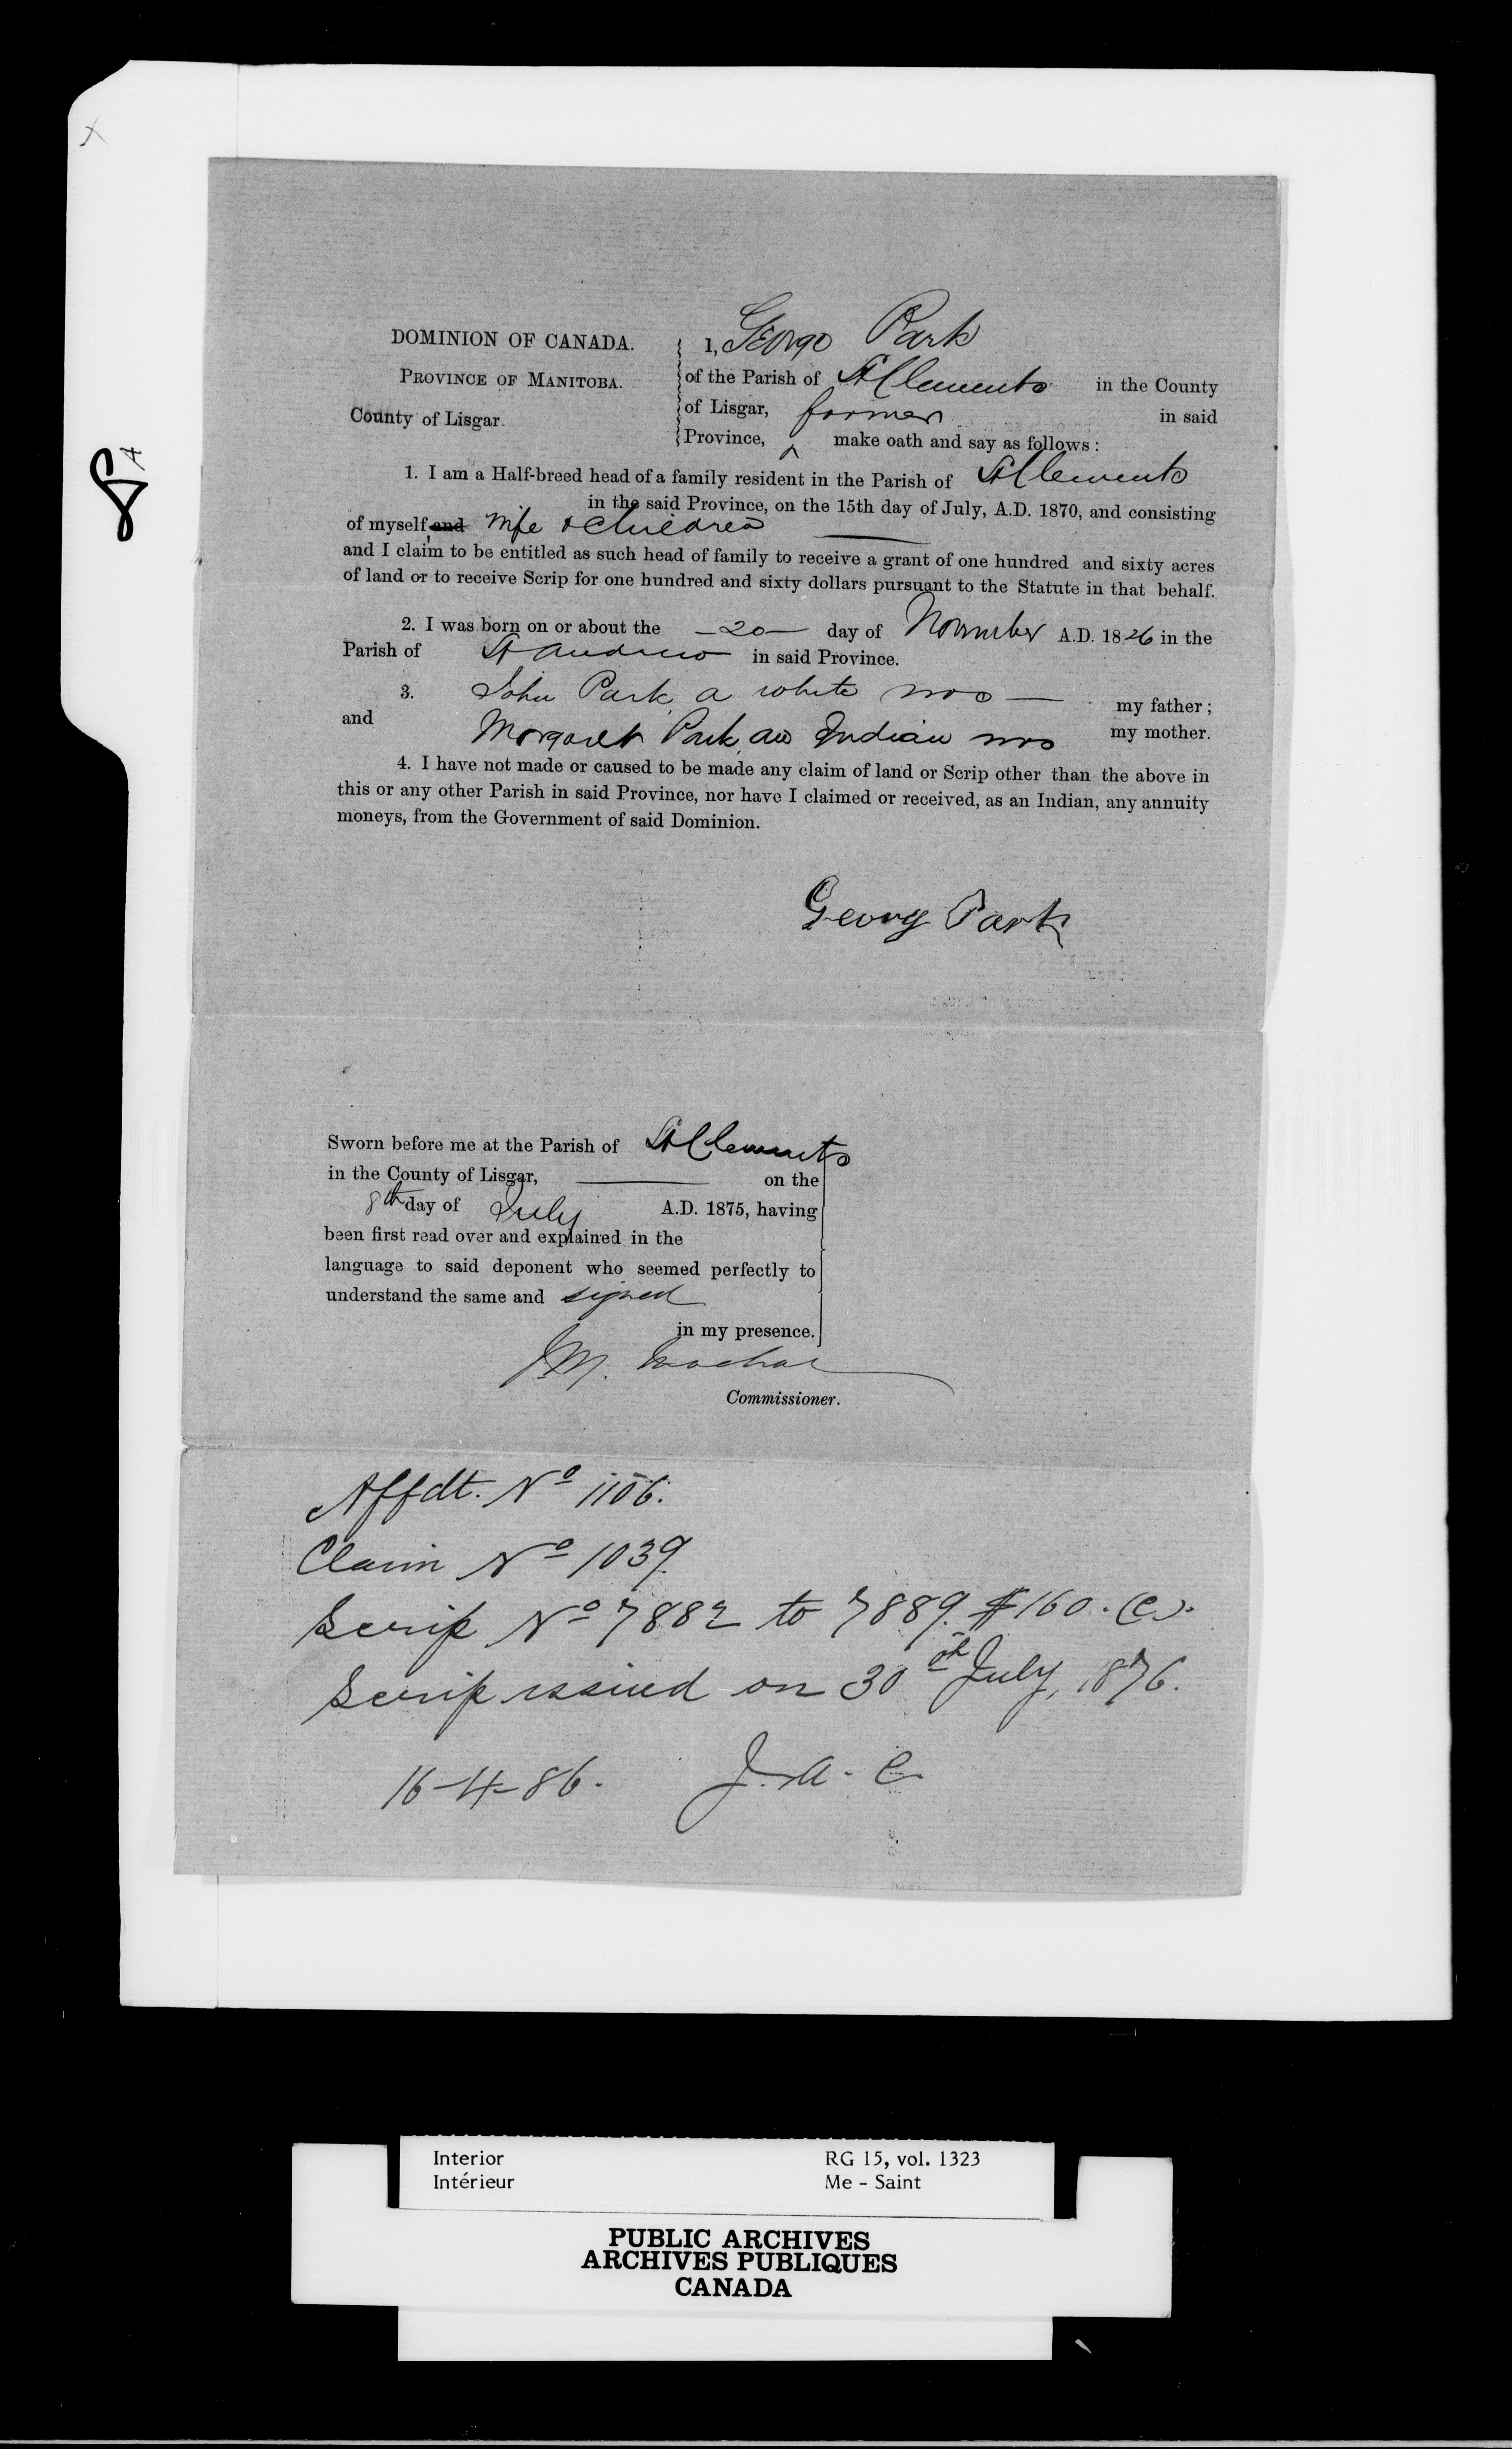 DOMINION OF CANADA.
PROVINCE OF MANITOBA.
County of Lisgar.
I, George Park
of the Parish of St Clements in the County
of Lisgar, farmer in said
Province, make oath and say as follows:
1. I am a Half-breed head of a family resident in the Parish of St Clements
in the said Province, on the 15th day of July, A.D. 1870, and consisting
of myself, and Wife & Children
and I claim to be entitled as such head of family to receive a grant of one hundred and sixty acres
of land or to receive Scrip for one hundred and sixty dollars pursuant to the Statute in that behalf.
2. I was born on or about the —20— day of November A.D. 1826 in the
Parish of St Andrews in said Province.
3. John Park, a white was — my father;
and Margaret Park, an Indian was my mother.
4. I have not made or caused to be made any claim of land or Scrip other than the above in
this or any other Parish in said Province, nor have I claimed or received, as an Indian, any annuity
moneys, from the Government of said Dominion.
Georg Park
Sworn before me at the Parish of St Clements
in the County of Lisgar, on the
8th day of July A.D. 1875, having
been first read over and explained in the
language to said deponent who seemed perfectly to
understand the same and signed
in my presence.
J.M. Machar
Commissioner.
Affdt. No 1106.
Claim No 1039.
Scrip No 7882 to 7889. $160. (C).
Scrip issued on 30th July, 1876.
16-4-86. J. A. C.
Interior RG 15, vol. 1323
Intérieur Me - Saint
PUBLIC ARCHIVES
ARCHIVES PUBLIQUES
CANADA